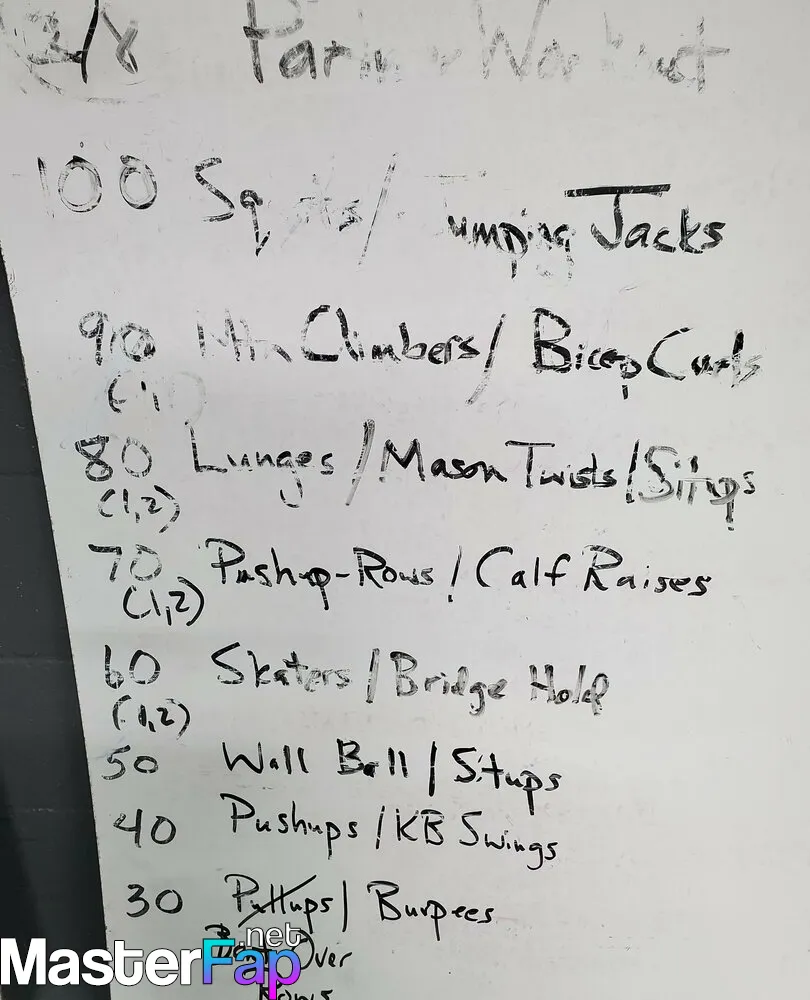 3/8 Partner Workout
100 Squats/ Jumping Jacks
90 Mtn Climbers/ Bicep Curls
80 Lunges / Mason Twists / Situps
(1,2)
70 Pushup-Rows / Calf Raises
(1,2)
60 Skaters / Bridge Hold
(1,2)
50 Wall Ball / Situps
40 Pushups / KB Swings
30 Pullups / Burpees
Bent Over
Rows
MasterFap.net